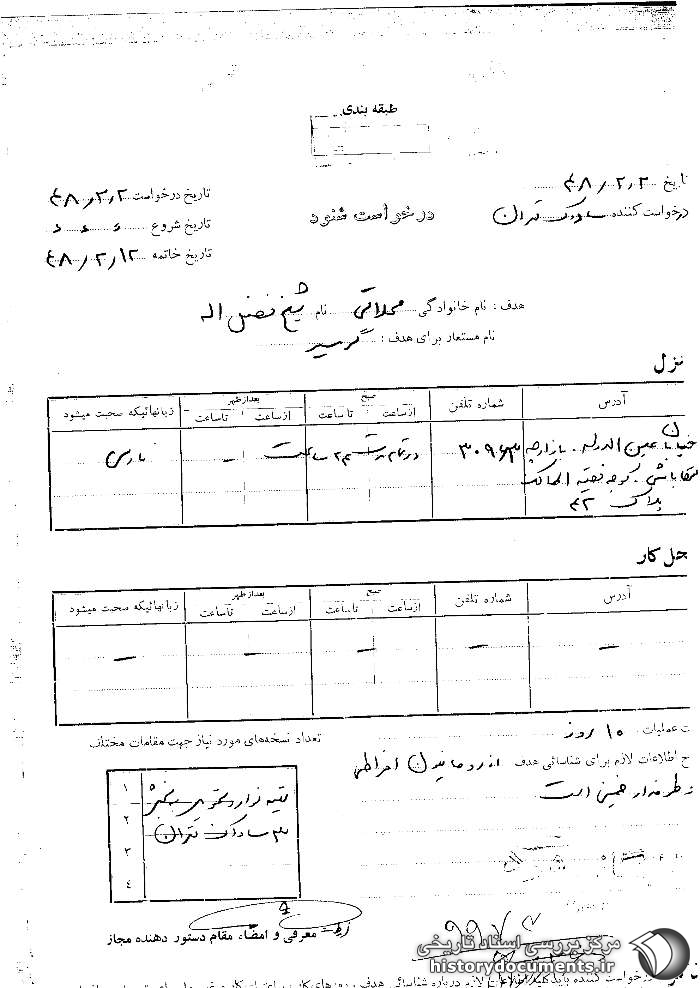 طبقه بندی
تاریخ ۴۸٫۲٫۲
درخواست کننده ساواک تهران
درخواست شنود
تاریخ درخواست ۴۸٫۲٫۲
تاریخ شروع ” ” ”
تاریخ خاتمه ۴۸٫۲٫۱۲
هدف: نام خانوادگی محلاتی نام شیخ فضل اله
نام مستعار برای هدف:
منزل
آدرس شماره تلفن صبح بعدازظهر زبانهائیکه صحبت میشود
ازساعت تاساعت ازساعت تاساعت
خیابان عین الدوله . بازارچه ۳۰۹۶۳ در تمام مدت ۲۴ ساعت - فارسی
سقاباشی . کوچه
پلاک ۴۲
محل کار
آدرس شماره تلفن صبح بعدازظهر زبانهائیکه صحبت میشود
ازساعت تاساعت ازساعت تاساعت
— — — — —
ت عملیات ۱۰ روز
تعداد نسخه‌های مورد نیاز جهت مقامات مختلف
ح اطلاعات لازم برای شناسائی هدف از روحانیون افراطی
و طرفدار خمینی است
۱
۲
۳
۴
تهیه نوار و تحویل به بخش
۳ ساواک تهران
معرفی و امضاء مقام دستور دهنده مجاز
مرکز بررسی اسناد تاریخی
historydocuments.ir
درخواست کننده باید کلیه اطلاعات لازم درباره شناسائی هدف